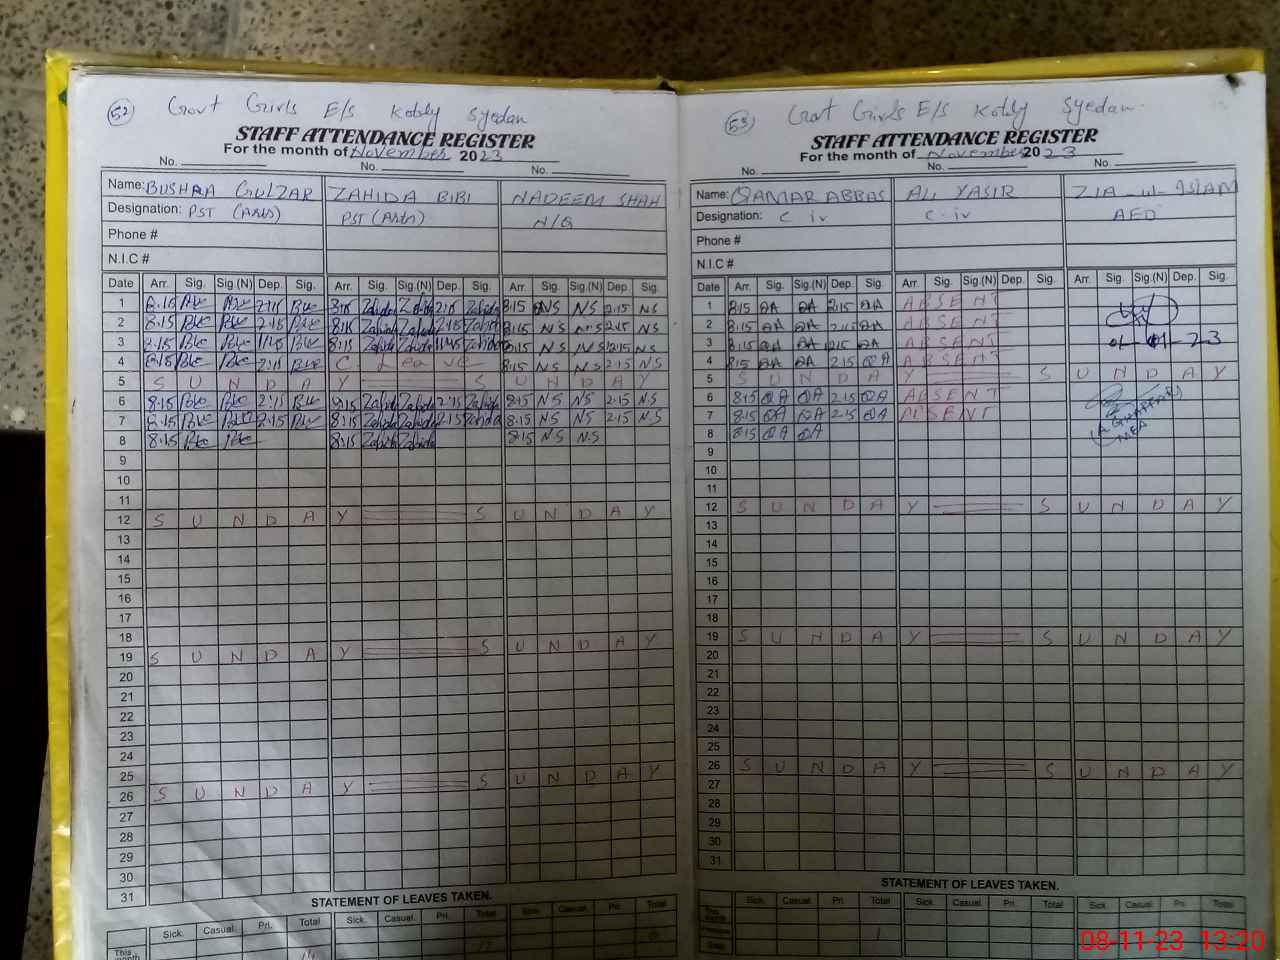 52 Govt Girls E/S Kotly Syedan
STAFF ATTENDANCE REGISTER
For the month of November 2023
No. No. No.
Name: BUSHRA GULZAR ZAHIDA BIBI NADEEM SHAH
Designation: PST (Arts) PST (Arts) N/Q
Phone #
N.I.C #
Date Arr. Sig. Sig.(N) Dep. Sig. Arr. Sig. Sig.(N) Dep. Sig. Arr. Sig. Sig.(N) Dep. Sig.
1 8.15 2:15 8:15 Zahida Zahida 2:15 Zahida 8:15 NS NS 2:15 NS
2 8.15 2:45 8:15 Zahida Zahida 2:45 Zahida 8:15 NS NS 2:45 NS
3 8.15 11:45 8:15 Zahida Zahida 11:45 Zahida 8:15 NS NS 12:15 NS
4 8.15 2:15 C. Leave 8:15 NS NS 2:15 NS
5 S U N D A Y S U N D A Y
6 8.15 2:15 8:15 Zahida Zahida 2:15 Zahida 8:15 NS NS 2:15 NS
7 8.15 2:15 8:15 Zahida Zahida 2:15 Zahida 8:15 NS NS 2:15 NS
8 8.15 8:15 Zahida Zahida 8:15 NS NS
9
10
11
12 S U N D A Y S U N D A Y
13
14
15
16
17
18
19 S U N D A Y S U N D A Y
20
21
22
23
24
25
26 S U N D A Y S U N D A Y
27
28
29
30
31
STATEMENT OF LEAVES TAKEN.
Sick. Casual. Pri. Total Sick. Casual. Pri. Total Sick. Casual. Pri. Total
This month
53 Govt Girls E/S Kotly Syedan
STAFF ATTENDANCE REGISTER
For the month of November 2023
No. No. No.
Name: QAMAR ABBAS ALI YASIR ZIA-ul-ISLAM
Designation: C iv C. iv AEO
Phone #
N.I.C #
Date Arr. Sig. Sig.(N) Dep. Sig. Arr. Sig. Sig.(N) Dep. Sig. Arr. Sig. Sig.(N) Dep. Sig.
1 8:15 QA QA 2:15 QA ABSENT
2 8:15 QA QA 2:45 QA ABSENT
3 8:15 QA QA 2:15 QA ABSENT
4 8:15 QA QA 2:15 QA ABSENT
5 S U N D A Y S U N D A Y
6 8:15 QA QA 2:15 QA ABSENT
7 8:15 QA QA 2:15 QA ABSENT
8 8:15 QA QA
(A. GHAFFAR)
MEA
9
10
11
12 S U N D A Y S U N D A Y
13
14
15
16
17
18
19 S U N D A Y S U N D A Y
20
21
22
23
24
25
26 S U N D A Y S U N D A Y
27
28
29
30
31
STATEMENT OF LEAVES TAKEN.
Sick. Casual. Pri. Total Sick. Casual. Pri. Total Sick. Casual. Pri. Total
This month
08-11-23 13:20